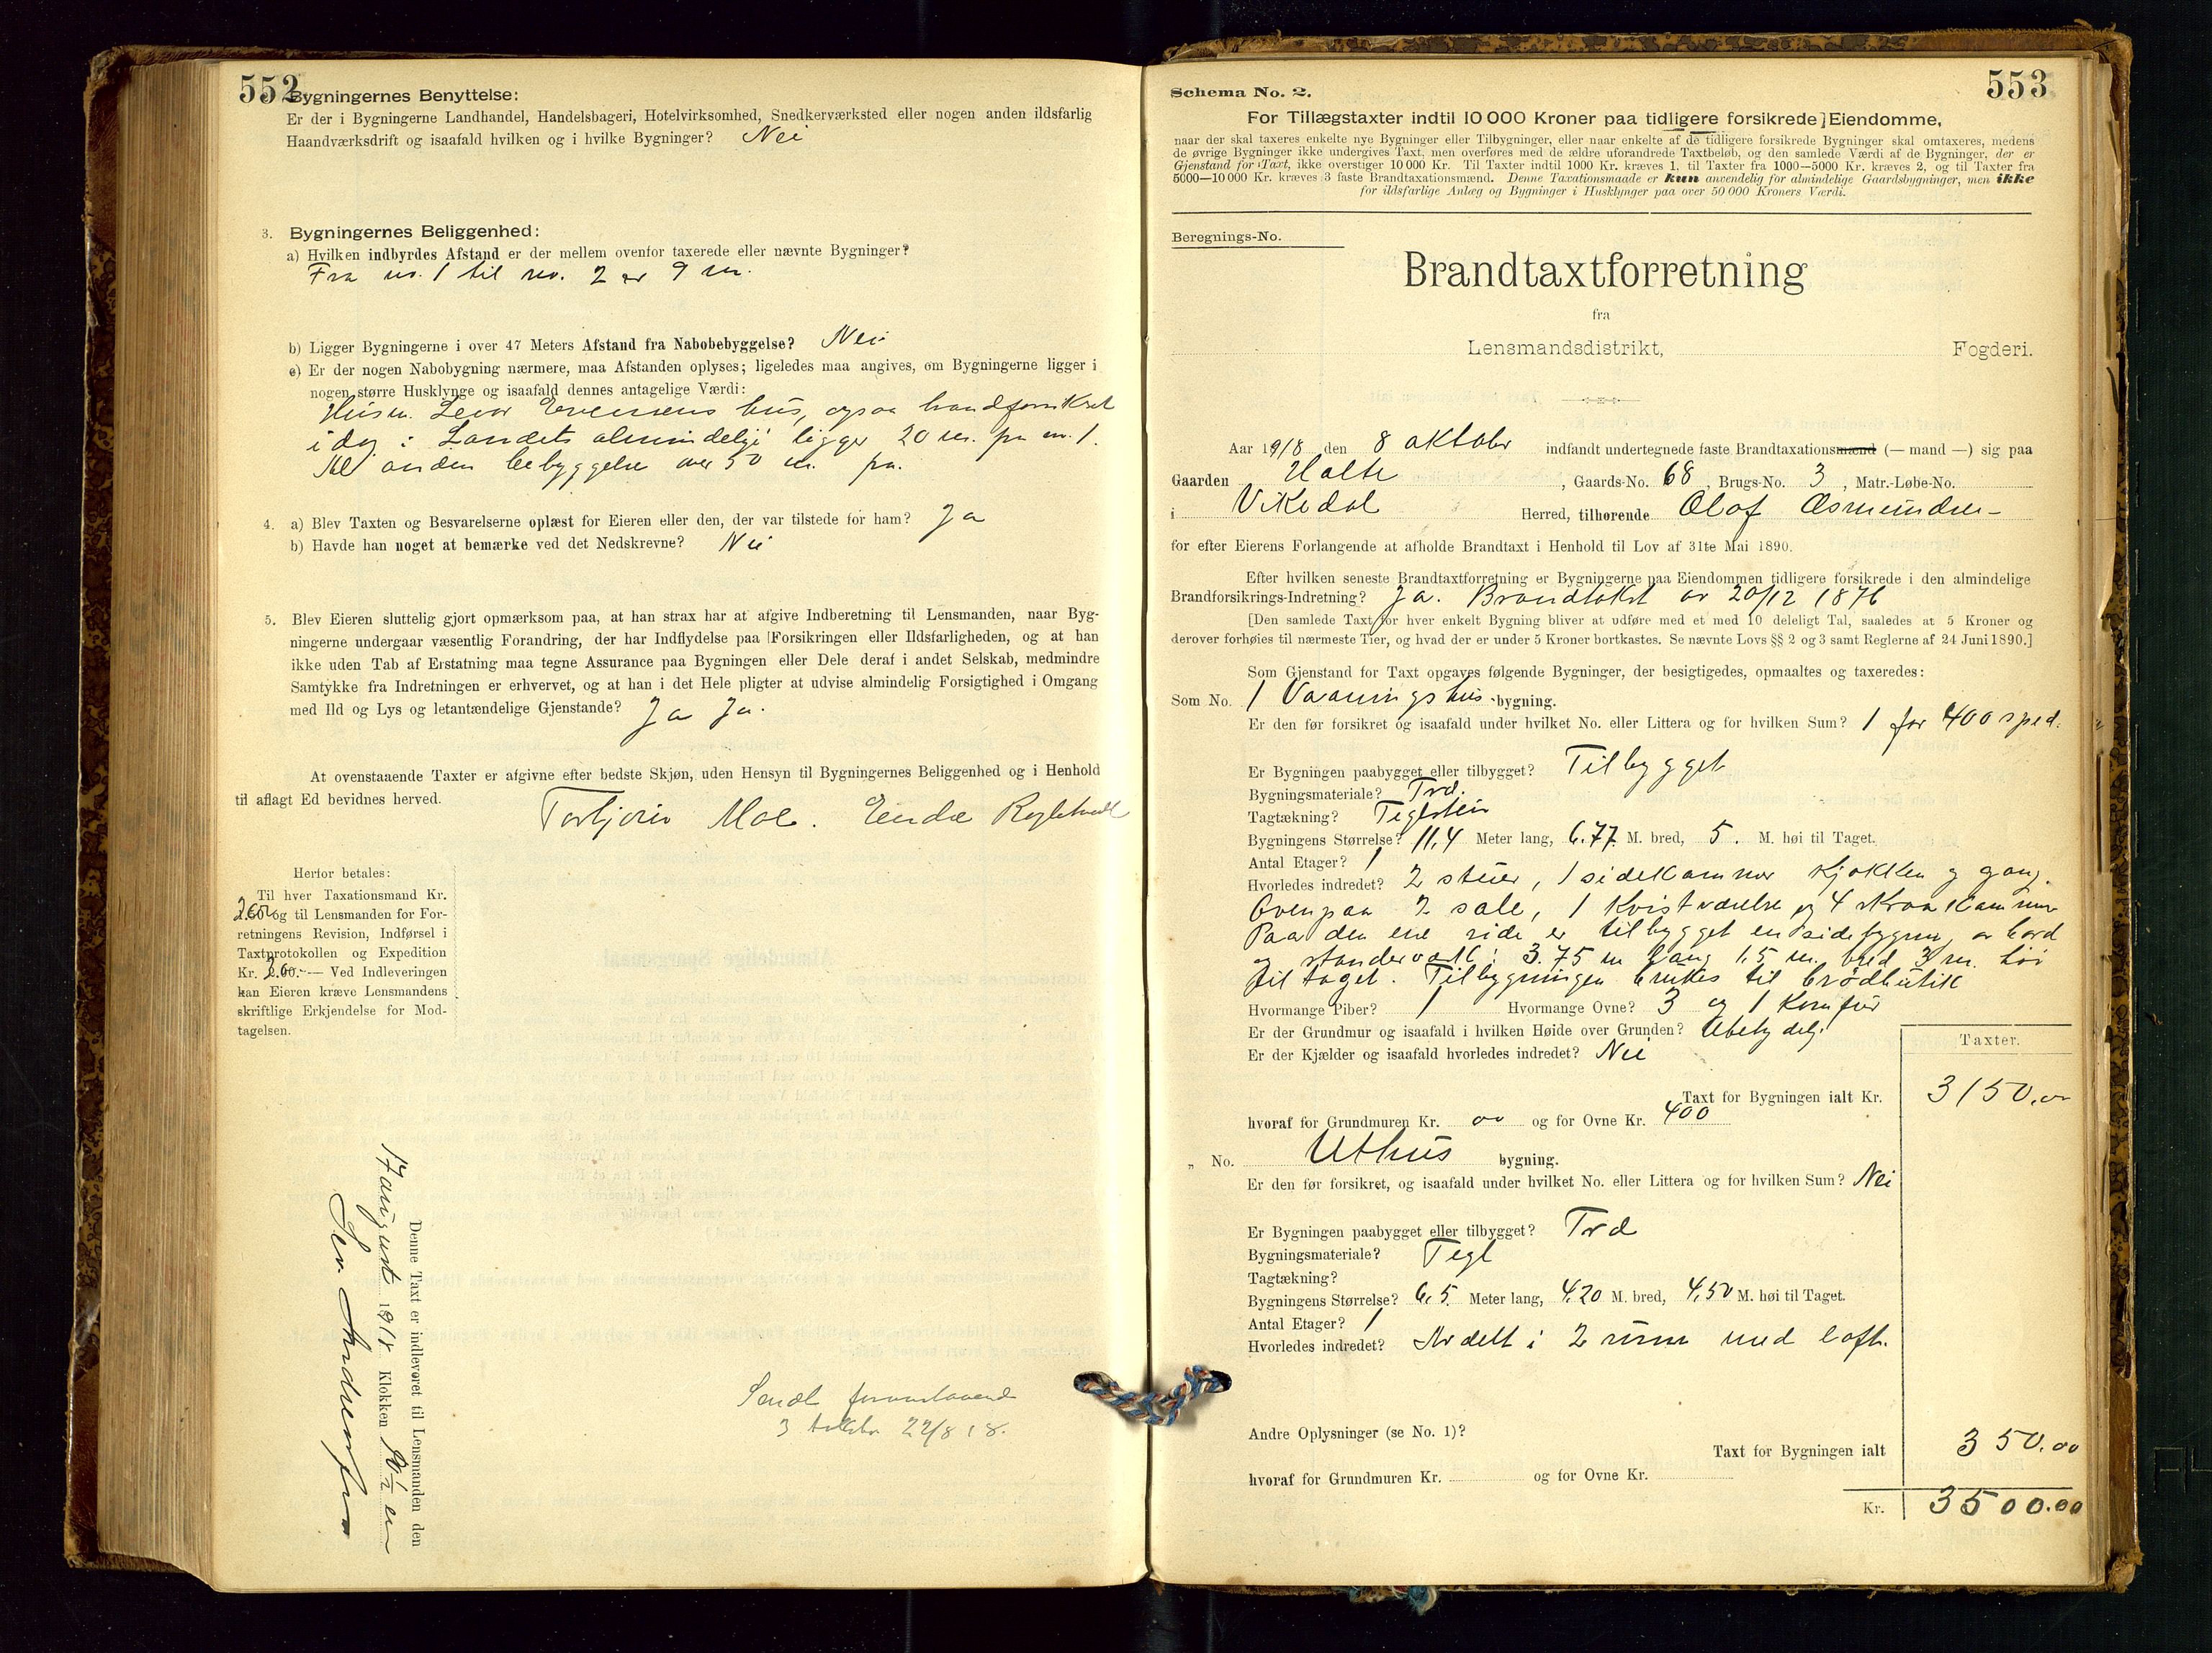 552
Bygningernes Benyttelse:
Er der i Bygningerne Landhandel, Handelsbageri, Hotelvirksomhed, Snedkerværksted eller nogen anden ildsfarlig
Haandværksdrift og isaafald hvilken og i hvilke Bygninger? Nei
3. Bygningernes Beliggenhed:
a) Hvilken indbyrdes Afstand er der mellem ovenfor taxerede eller nævnte Bygninger?
Fra no. 1 til no. 2 er 9 m.
b) Ligger Bygningerne i over 47 Meters Afstand fra Nabobebyggelse? Nei
c) Er der nogen Nabobygning nærmere, maa Afstanden oplyses; ligeledes maa angives, om Bygningerne ligger i
nogen større Husklynge og isaafald dennes antagelige Værdi:
hus, ogsaa brandforsikret
idag i Landets almindelige ligger 20 m. fra no. 1.
Al anden bebyggelse over 50 m. fra.
4. a) Blev Taxten og Besvarelserne oplæst for Eieren eller den, der var tilstede for ham? Ja
b) Havde han noget at bemærke ved det Nedskrevne? Nei
5. Blev Eieren sluttelig gjort opmærksom paa, at han strax har at afgive Indberetning til Lensmanden, naar Byg-
ningerne undergaar væsentlig Forandring, der har Indflydelse paa Forsikringen eller Ildsfarligheden, og at han
ikke uden Tab af Erstatning maa tegne Assurance paa Bygningen eller Dele deraf i andet Selskab, medmindre
Samtykke fra Indretningen er erhvervet, og at han i det Hele pligter at udvise almindelig Forsigtighed i Omgang
med Ild og Lys og letantændelige Gjenstande? Ja Ja.
At ovenstaaende Taxter er afgivne efter bedste Skjøn, uden Hensyn til Bygningernes Beliggenhed og i Henhold
til aflagt Ed bevidnes herved.
Torbjørn Moe.
Herfor betales:
Til hver Taxationsmand Kr.
2.50 og til Lensmanden for For-
retningens Revision, Indførsel i
Taxtprotokollen og Expedition
Kr. 2.00.— Ved Indleveringen
kan Eieren kræve Lensmandens
skriftlige Erkjendelse for Mod-
tagelsen.
Denne Taxt er indleveret til Lensmanden den
17 august 1918 Klokken
Sendt
22/8 18.
553
Schema No. 2.
For Tillægstaxter indtil 10 000 Kroner paa tidligere forsikrede Eiendomme,
naar der skal taxeres enkelte nye Bygninger eller Tilbygninger, eller naar enkelte af de tidligere forsikrede Bygninger skal omtaxeres, medens
de øvrige Bygninger ikke undergives Taxt, men overføres med de ældre uforandrede Taxtbeløb, og den samlede Værdi af de Bygninger, der er
Gjenstand for Taxt, ikke overstiger 10 000 Kr. Til Taxter indtil 1000 Kr. kræves 1, til Taxter fra 1000—5000 Kr. kræves 2, og til Taxter fra
5000—10 000 Kr. kræves 3 faste Brandtaxationsmænd. Denne Taxationsmaade er kun anvendelig for almindelige Gaardsbygninger, men ikke
for ildsfarlige Anlæg og Bygninger i Husklynger paa over 50 000 Kroners Værdi.
Beregnings-No.
Brandtaxtforretning
fra
Lensmandsdistrikt, Fogderi.
Aar 1918 den 8 oktober indfandt undertegnede faste Brandtaxationsmænd (— mand —) sig paa
Gaarden Halte, Gaards-No. 68, Brugs-No. 3, Matr.-Løbe-No.
i Vikedal Herred, tilhørende Olaf Asmundsen
for efter Eierens Forlangende at afholde Brandtaxt i Henhold til Lov af 31te Mai 1890.
Efter hvilken seneste Brandtaxtforretning er Bygningerne paa Eiendommen tidligere forsikrede i den almindelige
Brandforsikrings-Indretning? Ja. Brandtakst av 20/12 1876
[Den samlede Taxt for hver enkelt Bygning bliver at udføre med et med 10 deleligt Tal, saaledes at 5 Kroner og
derover forhøies til nærmeste Tier, og hvad der er under 5 Kroner bortkastes. Se nævnte Lovs §§ 2 og 3 samt Reglerne af 24 Juni 1890.]
Som Gjenstand for Taxt opgaves følgende Bygninger, der besigtigedes, opmaaltes og taxeredes:
Som No. 1 Vaaningshus bygning.
Er den før forsikret og isaafald under hvilket No. eller Littera og for hvilken Sum? 1 for 400 spd.
Er Bygningen paabygget eller tilbygget? Tilbygget
Bygningsmateriale? Træ.
Tagtækning? Teglsten
Bygningens Størrelse? 11,4 Meter lang, 6.77 M. bred, 5. M. høi til Taget.
Antal Etager? 1
Hvorledes indredet? 2 stuer, 1 sidekammer kjøkken og gang.
Ovenpaa 2 sale, 1 kvistværelse og 4 skraakammer
Paa den ene side er tilbygget en sidebygning av bord
og standerverk: 3.75 m lang 1,5 m. bred 3 m. høi
til taget. Tilbygningen brukes til brødbutik
Hvormange Piber? 1 Hvormange Ovne? 3 og 1 komfur
Er der Grundmur og isaafald i hvilken Høide over Grunden? Ubetydelig
Er der Kjælder og isaafald hvorledes indredet? Nei
Taxter.
Taxt for Bygningen ialt Kr. 3150.00
hvoraf for Grundmuren Kr. 00 og for Ovne Kr. 400
„ No. Uthus bygning.
Er den før forsikret, og isaafald under hvilket No. eller Littera og for hvilken Sum? Nei
Er Bygningen paabygget eller tilbygget? Træ
Bygningsmateriale? Tegl
Tagtækning?
Bygningens Størrelse? 6,5 Meter lang, 4,20 M. bred, 4,50 M. høi til Taget.
Antal Etager? 1
Hvorledes indredet? Avdelt i 2 rum med loft.
Andre Oplysninger (se No. 1)?
Taxt for Bygningen ialt 350.00
hvoraf for Grundmuren Kr. og for Ovne Kr.
Kr. 3500.00